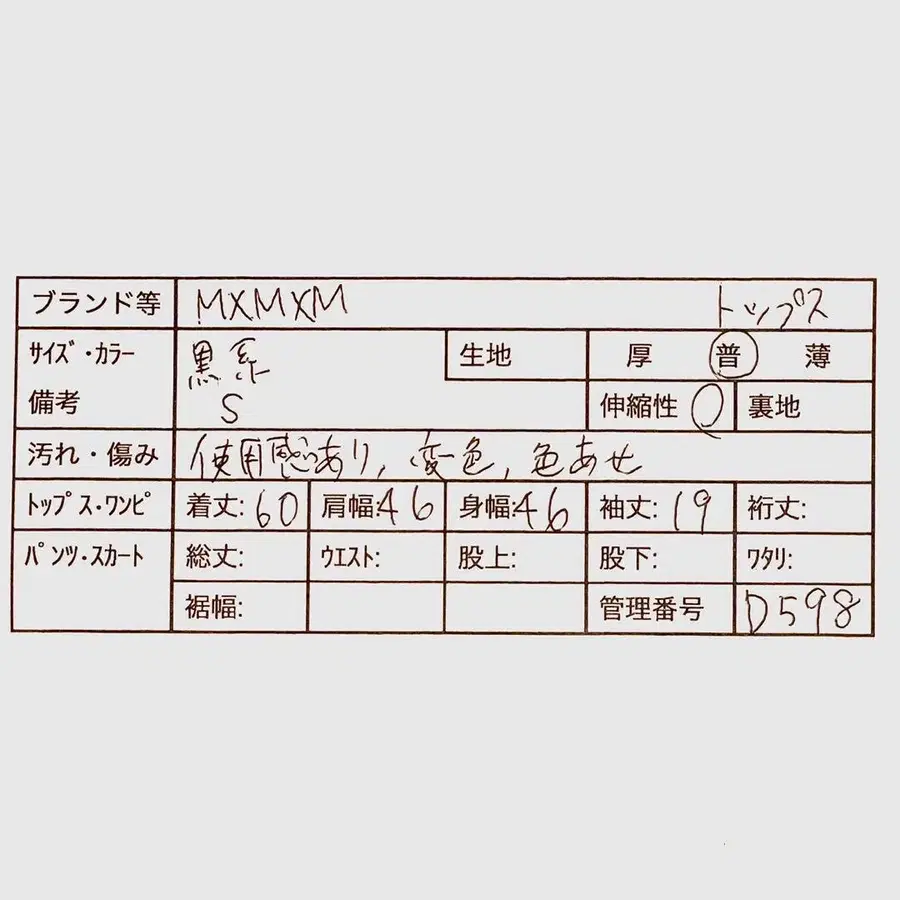 ブランド等 MXMXM トップス
サイズ・カラー 黒系 生地 厚 普 薄
備考 S 伸縮性 〇 裏地
汚れ・傷み 使用感あり, 変色, 色あせ
トップス・ワンピ 着丈:60 肩幅:46 身幅:46 袖丈:19 裄丈:
パンツ・スカート 総丈: ウエスト: 股上: 股下: ワタリ:
裾幅: 管理番号 D598